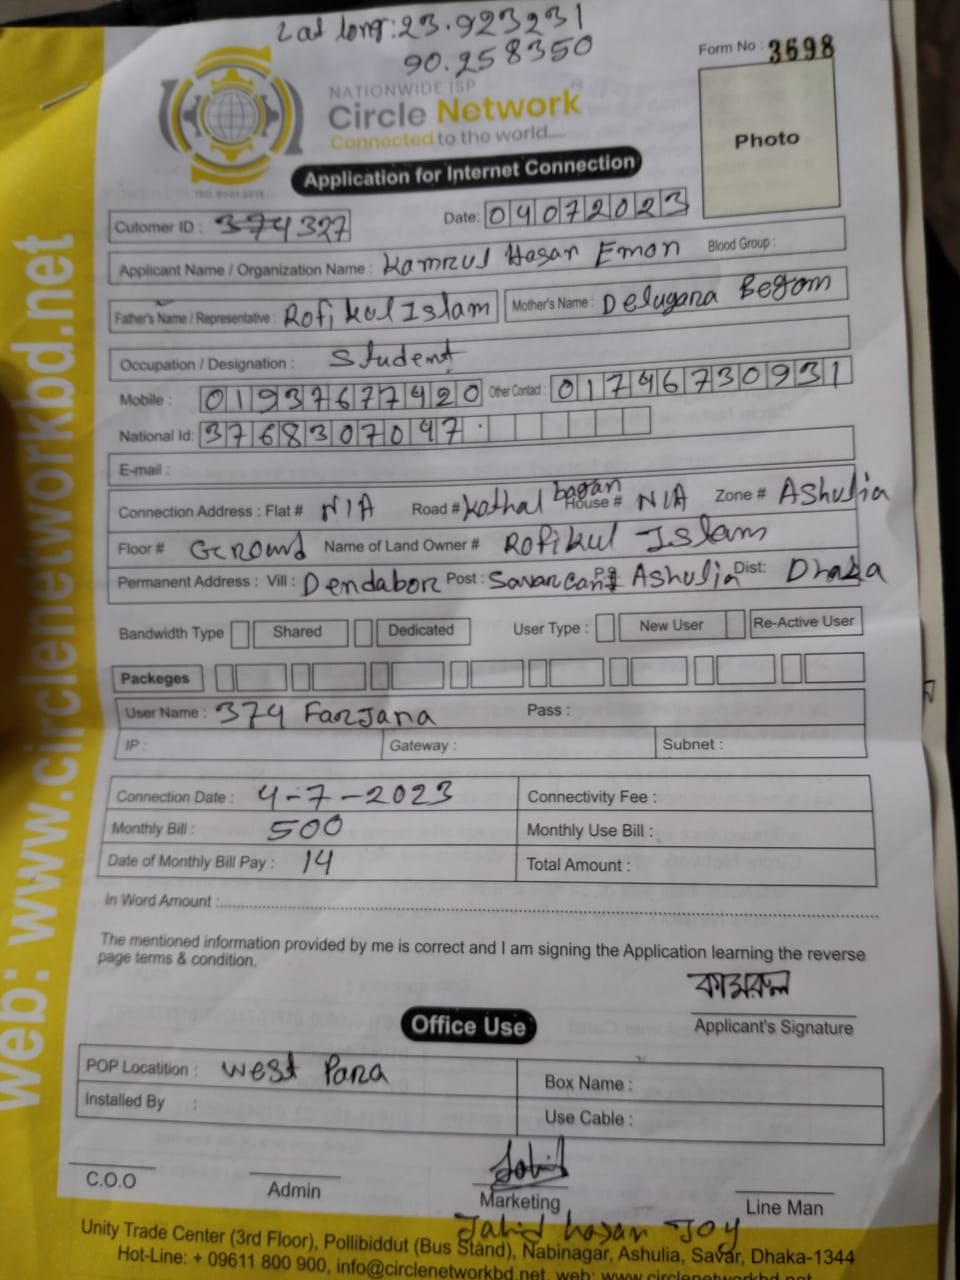 Lat long: 23.923231
90.258350
Form No : 3698
NATIONWIDE ISP
Circle Network
Connected to the world....
Photo
Application for Internet Connection
Cutomer ID : 374327
Date: 04072023
Applicant Name / Organization Name : Kamrul Hasan Emon Blood Group :
Father's Name / Representative : Rofikul Islam Mother's Name : Delugana Begom
Occupation / Designation : Student
Mobile : 01937677420 Other Contact : 01746730931
National Id: 3768307047
E-mail :
Connection Address : Flat # N/A Road # Kathal bagan House # N/A Zone # Ashulia
Floor # Ground Name of Land Owner # Rofikul Islam
Permanent Address : Vill : Dendabor Post : Savar P.S Ashulia Dist: Dhaka
Bandwidth Type Shared Dedicated User Type : New User Re-Active User
Packeges
User Name : 374 Farjana Pass :
IP : Gateway : Subnet :
Connection Date : 4-7-2023 Connectivity Fee :
Monthly Bill : 500 Monthly Use Bill :
Date of Monthly Bill Pay : 14 Total Amount :
In Word Amount :
The mentioned information provided by me is correct and I am signing the Application learning the reverse
page terms & condition.
কামরুল
Applicant's Signature
Office Use
POP Locatition : West Para Box Name :
Installed By : Use Cable :
C.O.O Admin Marketing Line Man
Jahid hasan Joy
Unity Trade Center (3rd Floor), Pollibiddut (Bus Stand), Nabinagar, Ashulia, Savar, Dhaka-1344
Hot-Line: + 09611 800 900, info@circlenetworkbd.net, web: www.circlenetworkbd.net
web: www.circlenetworkbd.net